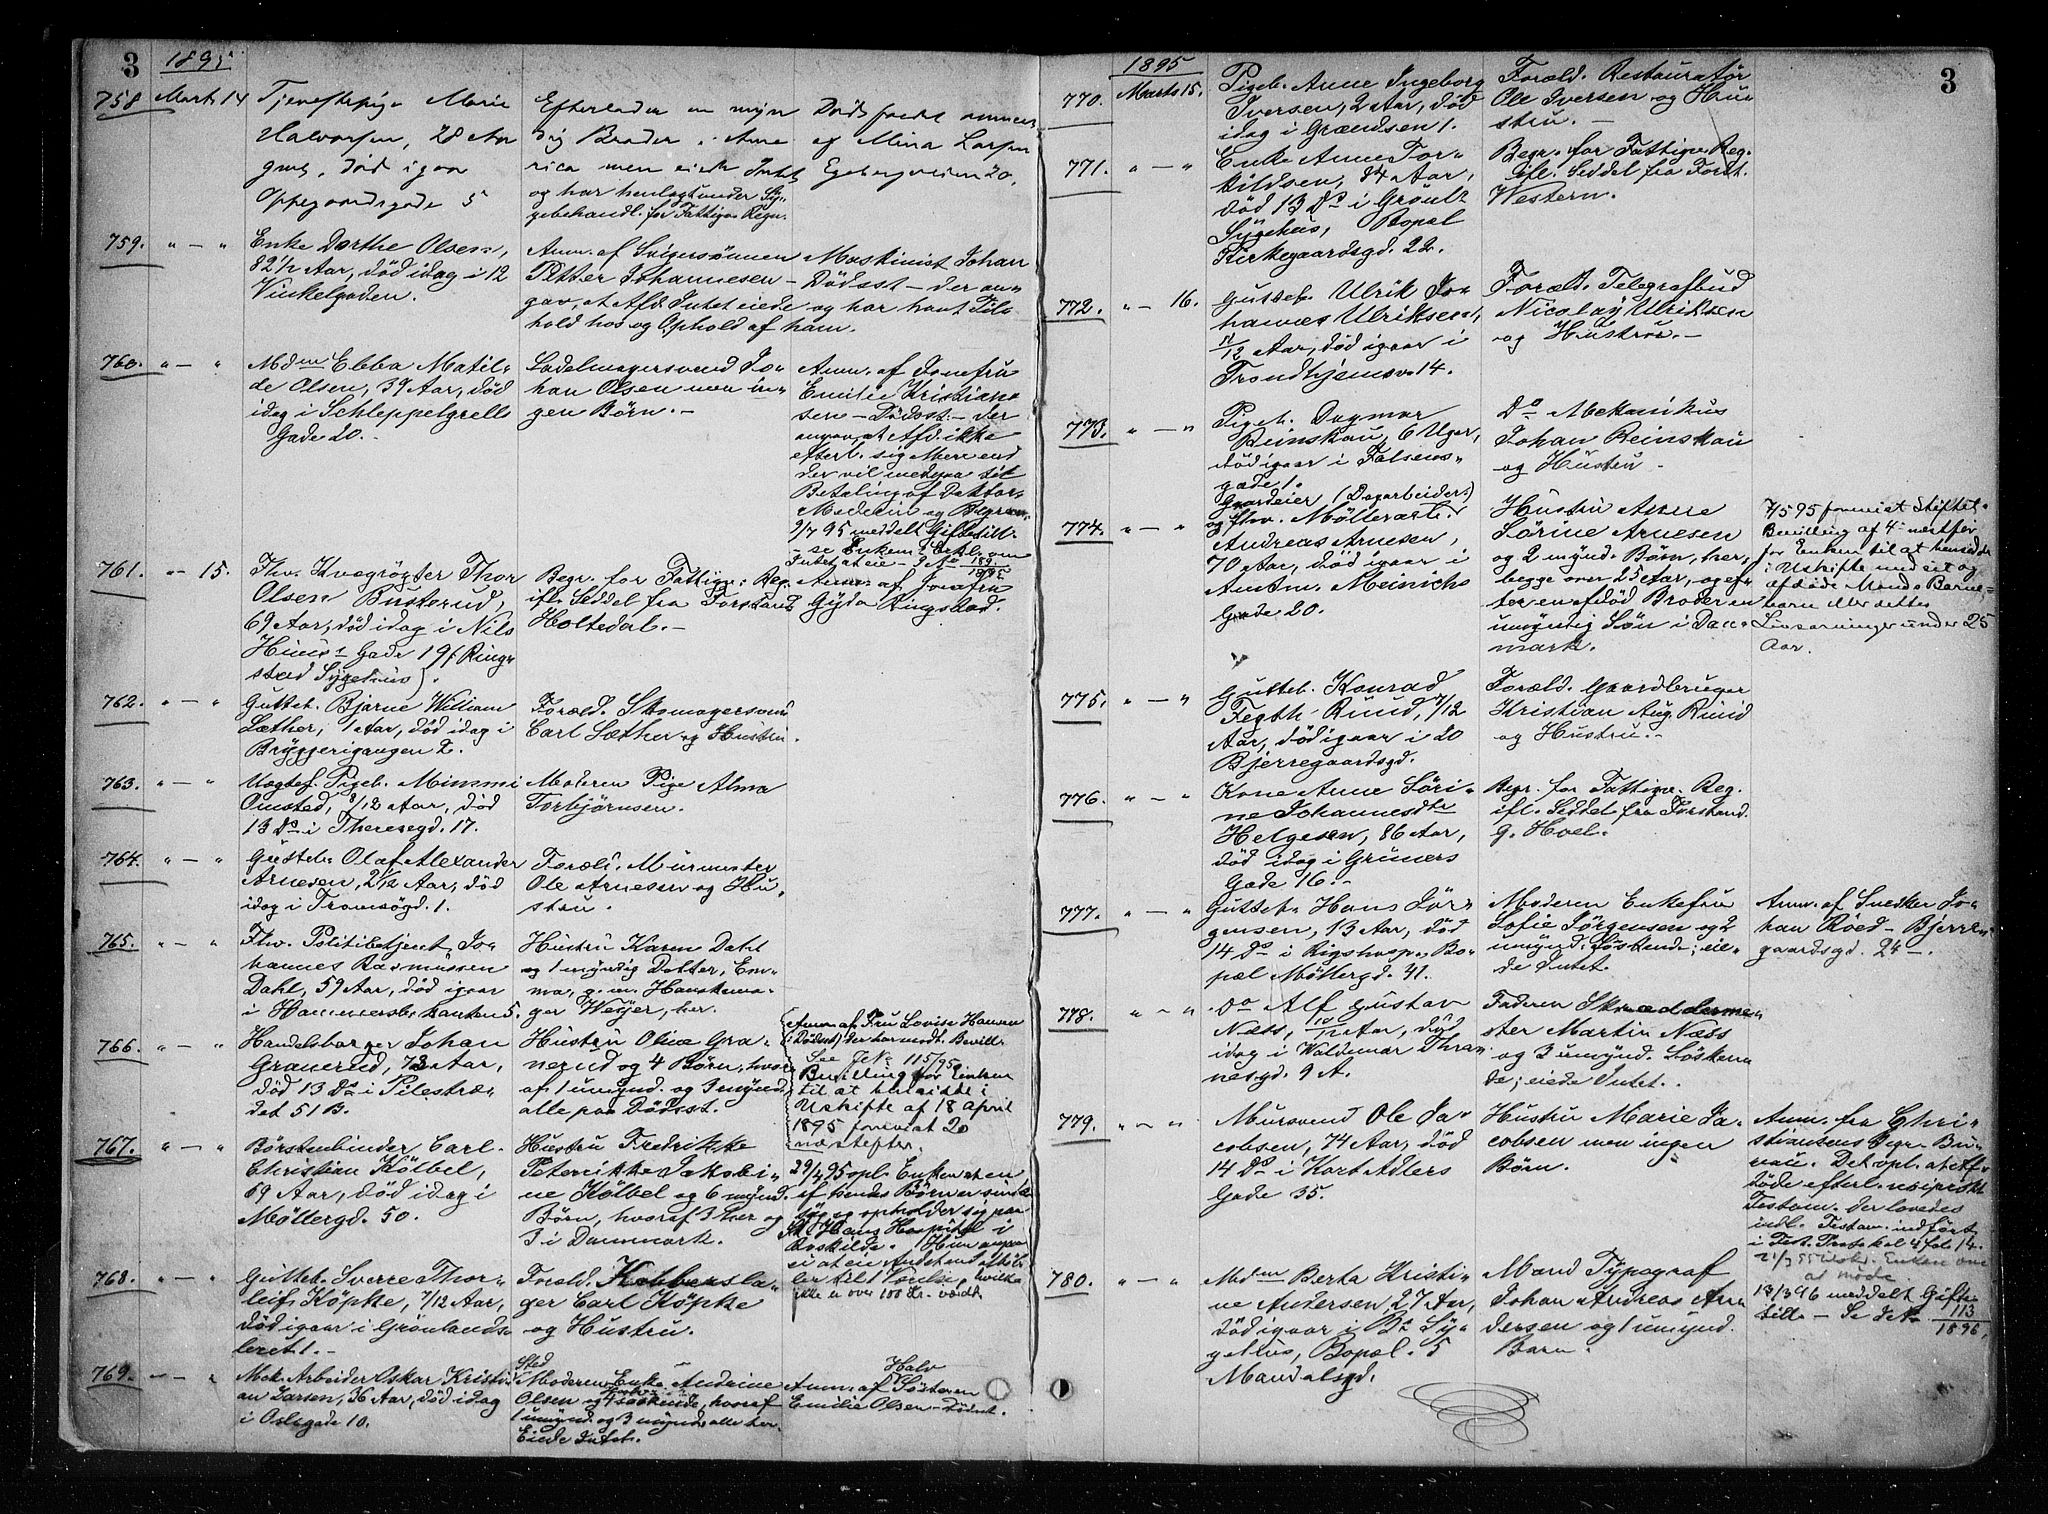 3
1895
758. Marts 14
Tjenestepige Marie
Halvorsen, 28 Aar
død igaar
Oppegaardsgade 5
Efterlader en myn
dig Broder i Ame
rica men eiede Intet
og har henligt under Sy-
gebehandl. for Fattigv. Regn.
Dødsfaldet anmeldt
af Mina Larsen
Egebergveien 20.
759. " — "
Enke Dorthe Olsen,
82 1/2 Aar, død idag i 12
Vinkelgaden.
Anm. af Svigersønnen Maskinist Johan
Petter Johannesen — Dødsst. — der an-
gav, at Afd. Intet eiede og har havt Til-
hold hos og Ophold af ham.
760. " — "
Mdm Ebba Matil-
de Olsen, 39 Aar, død
idag i Schleppelgrells
Gade 20.
Sadelmagersvend Jo-
han Olsen men in-
gen Børn. —
Anm. af Jomfru
Emilie Kristian-
sen — Dødsst. — der
angav, at Afd. ikke
efterl. sig Mere end
der vil medgaa til
Betaling af Doktor,
Medecin og Begr.
9/7 95 meddelt Giftesill.
— se Enkem. Erkl. om
Intet at eie —
761. " — 15.
Fhv. Kvægrøgter Thor
Olsen Busterud,
69 Aar, død idag i Nils
Huus's Gade 19 (Ring-
stad Sygehus).
Begr. for Fattigv. Reg.
ifl. Seddel fra Forstand.
Holtedal. —
Anm. af Jomfru
Gyda Ringstad.
762. " — "
Gutteb. Bjarne William
Sæther, 1 Aar, død idag i
Bryggerigangen 2.
Foræld. Skomagersvend
Carl Sæther og Hustru.
763. " — "
Uægtef. Pigeb. Mimmi
Omsted, 8/12 Aar, død
13 Ds i Theresegd. 17.
Moderen Pige Alma
Torbjørnsen.
764. " — "
Gutteb. Olaf Alexander
Arnesen, 2 1/12 Aar, død
idag i Tromsøgd. 1.
Foræld. Murmester
Ole Arnesen og Hu-
stru.
765. " — "
Fhv. Politibetjent Jo-
hannes Rasmussen
Dahl, 59 Aar, død igaar
i Hammersborgkanten 5.
Hustru Karen Dahl
og 1 myndig Datter, Em-
ma, g. m. Hanskema-
ger Weyer, her.
766. " — "
Handelsborger Johan
Granerud, 73 Aar,
død 13 Ds i Pilestræ-
det 51 B.
Hustru Oline Gra-
nerud og 4 Børn, hvor-
af 1 umynd. og 3 mynd.
alle paa Dødsst.
Anm. af Fru Lovise Hansen
(Dødsst.) der har modt. Bevill.
See J. No 115/95
Bevilling for Enken
til at hensidde i
Uskifte af 18 April
1895 foreviist 20
næstefter.
767. " — "
Børstenbinder Carl
Christian Kölbel,
69 Aar, død idag i
Møllergd. 50.
Hustru Fredrikke
Peterrikke Jakobi-
ne Kölbel og 6 mynd.
Børn, hvoraf 3 her og
3 i Danmark.
29/4 95 opl. Enken at en
af hendes Børn er sinds-
syg og opholder sig paa
St. Hans Hospital i
Roskilde. Hun angav
ei at eie Andet end
ikke er over 100 Kr. værdt.
768. " — "
Gutteb. Sverre Thor-
leif Köpke, 7/12 Aar,
død igaar i Grønlands-
leret 1. —
Foræld. Kobbersla-
ger Carl Köpke
og Hustru.
769. " — "
Mek. Arbeider Oskar Kristi-
an Larsen, 36 Aar, død idag
i Oslogade 10.
Sted
Moderen Enke Andrine
Olsen og 4 Søskende, hvoraf
1 umynd. og 3 mynd. alle her.
Eiede Intet.
Halv
Anm. af Søsteren
Emilie Olsen — Dødsst.
1895
3
770. Marts 15.
Pigeb. Anne Ingeborg
Iversen, 2 Aar, død
idag i Grændsen 1.
Foræld. Restauratør
Ole Iversen og Hu-
stru. —
771. " — "
Enke Anne Tor-
kildsen, 84 Aar,
død 13 Ds i Grøultz
Sygehus, Bopæl
Kirkegaardsgd. 22.
Begr. for Fattigv. Reg.
ifl. Seddel fra Forst.
Western.
772. " — 16.
Gutteb. Ulrik Jo-
hannes Ulriksen,
11/12 Aar, død igaar i
Trondhjemsv. 14.
Foræld. Telegrafbud
Nicolay Ulriksen
og Hustru. —
773. " — "
Pigeb. Dagmar
Reinskau, 6 Uger,
død igaar i Falsens-
gade 1.
Do Mekanikus
Johan Reinskau
og Hustru.
774. " — "
Gaardeier (Dagarbeider)
og fhv. Møllerarb.
Andreas Arnesen,
70 Aar, død igaar i
Amtm. Meinichs
Gade 20.
Hustru Anne
Sørine Arnesen
og 2 mynd. Børn, her,
begge over 25 Aar, og ef-
ter en afdød Broder en
umyndig Søn i Dan-
mark.
7/5 95 foreviist Stiftets
Bevilling af 4 næstfør
for Enken til at hensidde
i Uskifte med sit og
afdøde Mands Barne-
barn eller dettes
Livsarvinger under 25
Aar.
775. " — "
Gutteb. Konrad
Fegth Ruud, 7/12
Aar, død igaar i 20
Bjerregaardsgd.
Foræld. Gaardbruger
Kristian Aug. Ruud
og Hustru. —
776. " — "
Kone Anne Søri-
ne Johannesdtr
Helgesen, 86 Aar,
død idag i Grüners
Gade 16. —
Begr. for Fattigv. Reg.
ifl. Seddel fra Forstand.
G. Hoel.
777. " — "
Gutteb. Hans Jør-
gensen, 13 Aar, død
14 Ds i Rigshosp., Bo-
pæl Møllergd. 41.
Moderen Enkefru
Sofie Jørgensen og 2
umynd. Søskende; eie-
de Intet.
Anm. af Snedker Jo-
han Röed — Bjerre-
gaardsgd. 24 —.
778. " — "
Do Alf Gustav
Næss, 10/12 Aar, død
idag i Waldemar Thra-
nesgd. 9 A.
Faderen Skrædderme-
ster Martin Næss
og 3 umynd. Sösken-
de; eiede Intet. .
779. " — "
Mursvend Ole Ja-
cobsen, 74 Aar, død
14 Ds i Kort Adlers
Gade 35.
Hustru Marie Ja-
cobsen men ingen
Børn.
Anm. fra Chri-
stiansens Begr. Bu-
reau. Det opl. at Af-
døde efterl. recipr.
Testam. der lovedes
indl. Testam. indført
i Test. Protokol 4 fol. 14.
780. " — "
Mdm Berta Kristi-
ne Andersen 27 Aar,
død igaar i Ds Sy-
gehus, Bopæl. 5
Mandalsgd.
Mand Typograf
Johan Andreas An-
dersen og 1 umynd.
Barn.
13/3 96 meddelt Gifte-
till. — Se J. No 113/1896.